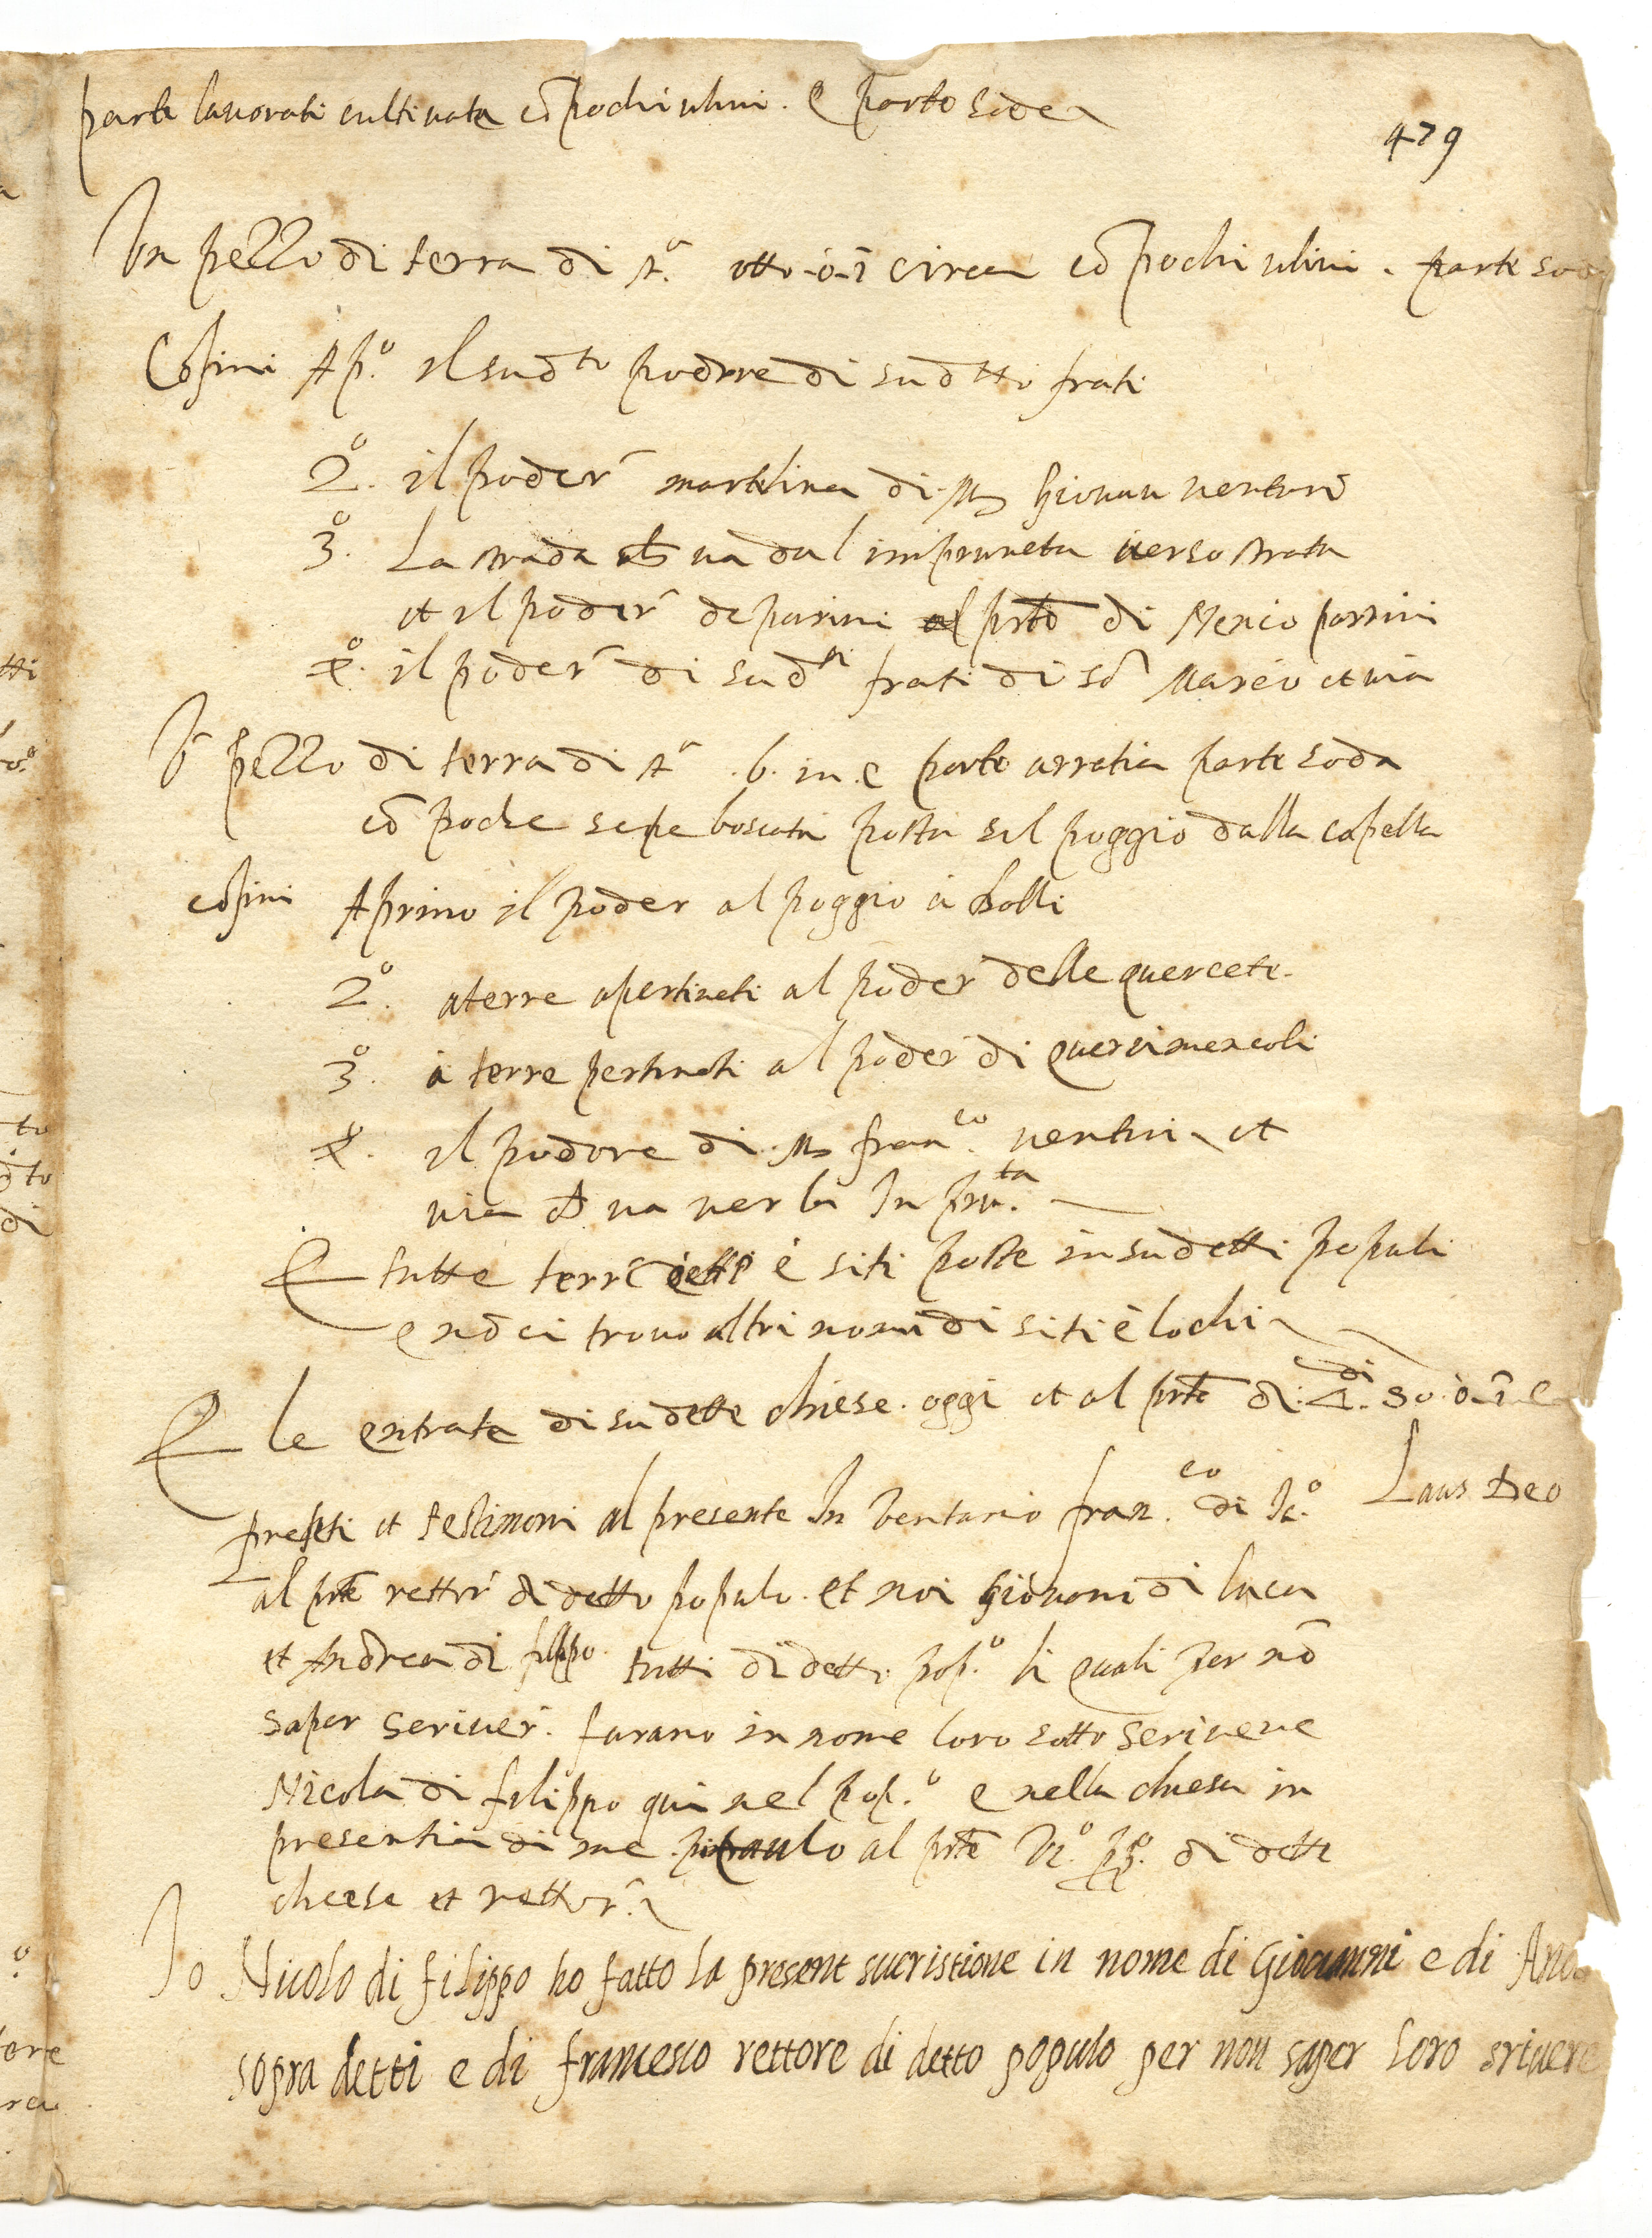 parte lavorati cultivata cō pochi ulivi . e parte soda
479
Un pezzo di terra di st.ᵃ otto - o - ī circa cō pochi ulivi . parte sod
Cōfini A pº. il sudᵗᵒ podere di sudᵗᵗⁱ frati
2º. il poder̄ martelina di Mˢ Giovan venturi
3º. La strada ch va dal impruneta verso strata
et il poder̄ de parini al prēte di Mencio parrini
4º. il poder̄ di sudᵗⁱ frati di Sō Marco et via
Ū pezzo di terra di stᵃ .6. in .e parte arratia parte soda
cō poche sepe boscata posta sul poggio dalla capella
cōfini A primo il poder al poggio a bolli
2º. a terre apertineti al poder̄ delle quercete.
3º. à terre pertineti al poder̄ di quercimencoli
4º. il podere di Mˢ franᶜᵒ. venturi et
via ch va ver la Inpruᵗᵃ.
E tutte terre è siti poste in sudetti populi
e nō ci trovo altri nomi di siti è lochi
E le entrate di sudette chiese . oggi et al prēte di . Δ.ᵈⁱ 50. ò - ī
Laus Deo
presēti et testimoni al presente Inventario fran.ᶜᵒ di Jcº.
al prēte rettor̄ di detto populo . et noi Giovani di luca
et Andrea di filippo . tutti di detti popº. li quali per nō
saper scriver̄ . farano in nome loro sotto scrivere
Nicola di filippo qui nel popº. e nella chiesa in
presentia di me . paulo al prēte di dette
cheese et rettor̄.
Io Nicolo di filippo ho fatto la present sucristione in nome di Giovanni e di And
sopra detti e di francesco rettore di detto popolo per non saper loro srivere